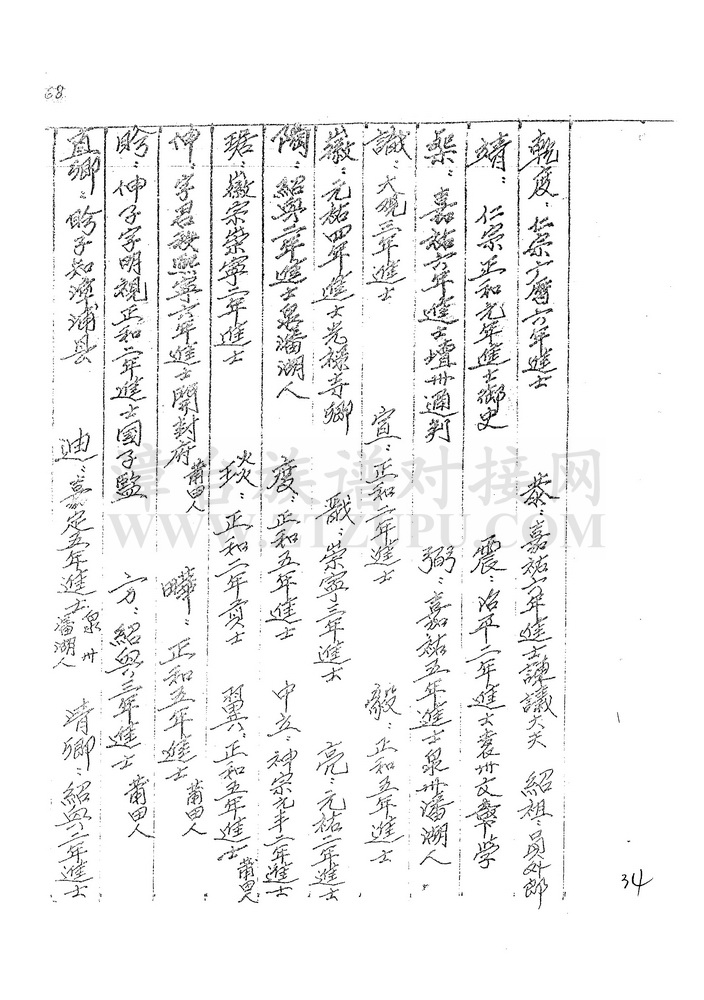 68
乾度：仁宗六年進士　泰：嘉祐六年進士諫議大夫　紹祖：員外郎
靖：仁宗正和元年進士御史　震：治平二年進士袁州文章学
榘：嘉祐六年進士州通判　弼：嘉祐五年進士泉州潘湖人
識：大观三年進士　宣：正和二年進士　毅：正和五年進士
徽：元祐四年進士光禄寺卿　戩：崇寧三年進士　亮：元祐二年進士
隅：紹興二年進士泉潘湖人　度：正和五年進士　中立：神宗元丰二年進士
琚：徽宗崇寧二年進士　琰：正和二年貢士　翼：正和五年進士 莆田人
伸：字君熙寧六年進士開封府 莆田人　曄：正和五年進士 莆田人
昤：伸子字明視正和二年進士国子監　方：紹興三年進士 莆田人
直卿：昤子知漳浦县　迪：嘉定五年進士 泉州潘湖人　靖卿：紹興二年進士
34
漳台族谱对接网
WWW.ZTZUPU.COM